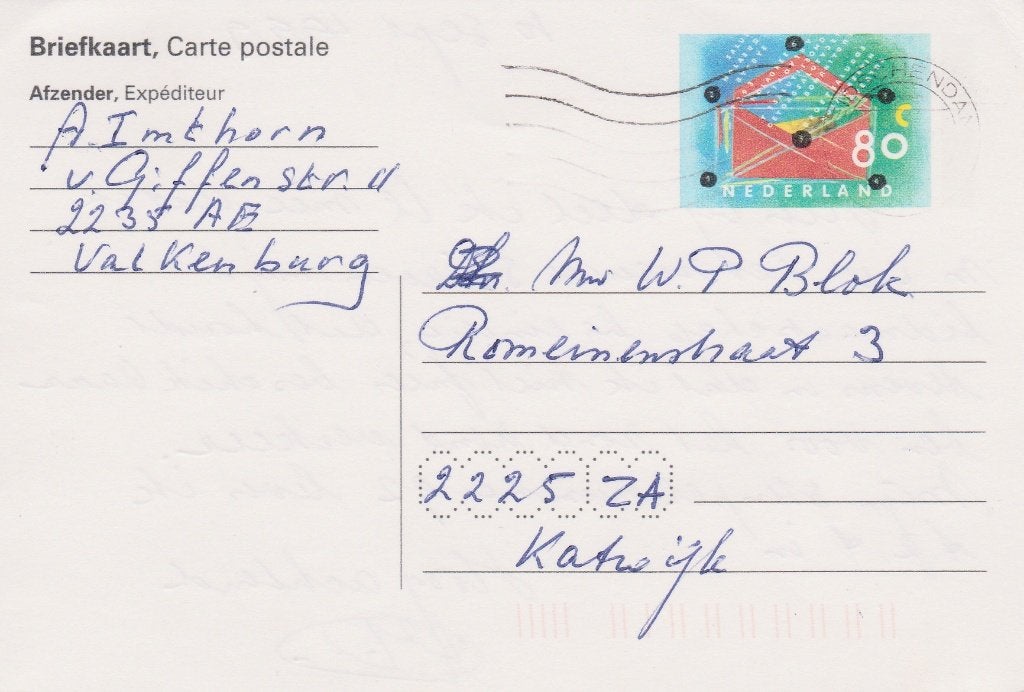 Briefkaart, Carte postale
Afzender, Expéditeur
A. Imthorn
v. Giffenstr. 11
2235 AE
Valkenburg
80 c
NEDERLAND
Mw W.P Blok
Romeinenstraat 3
2225 ZA
Katwijk